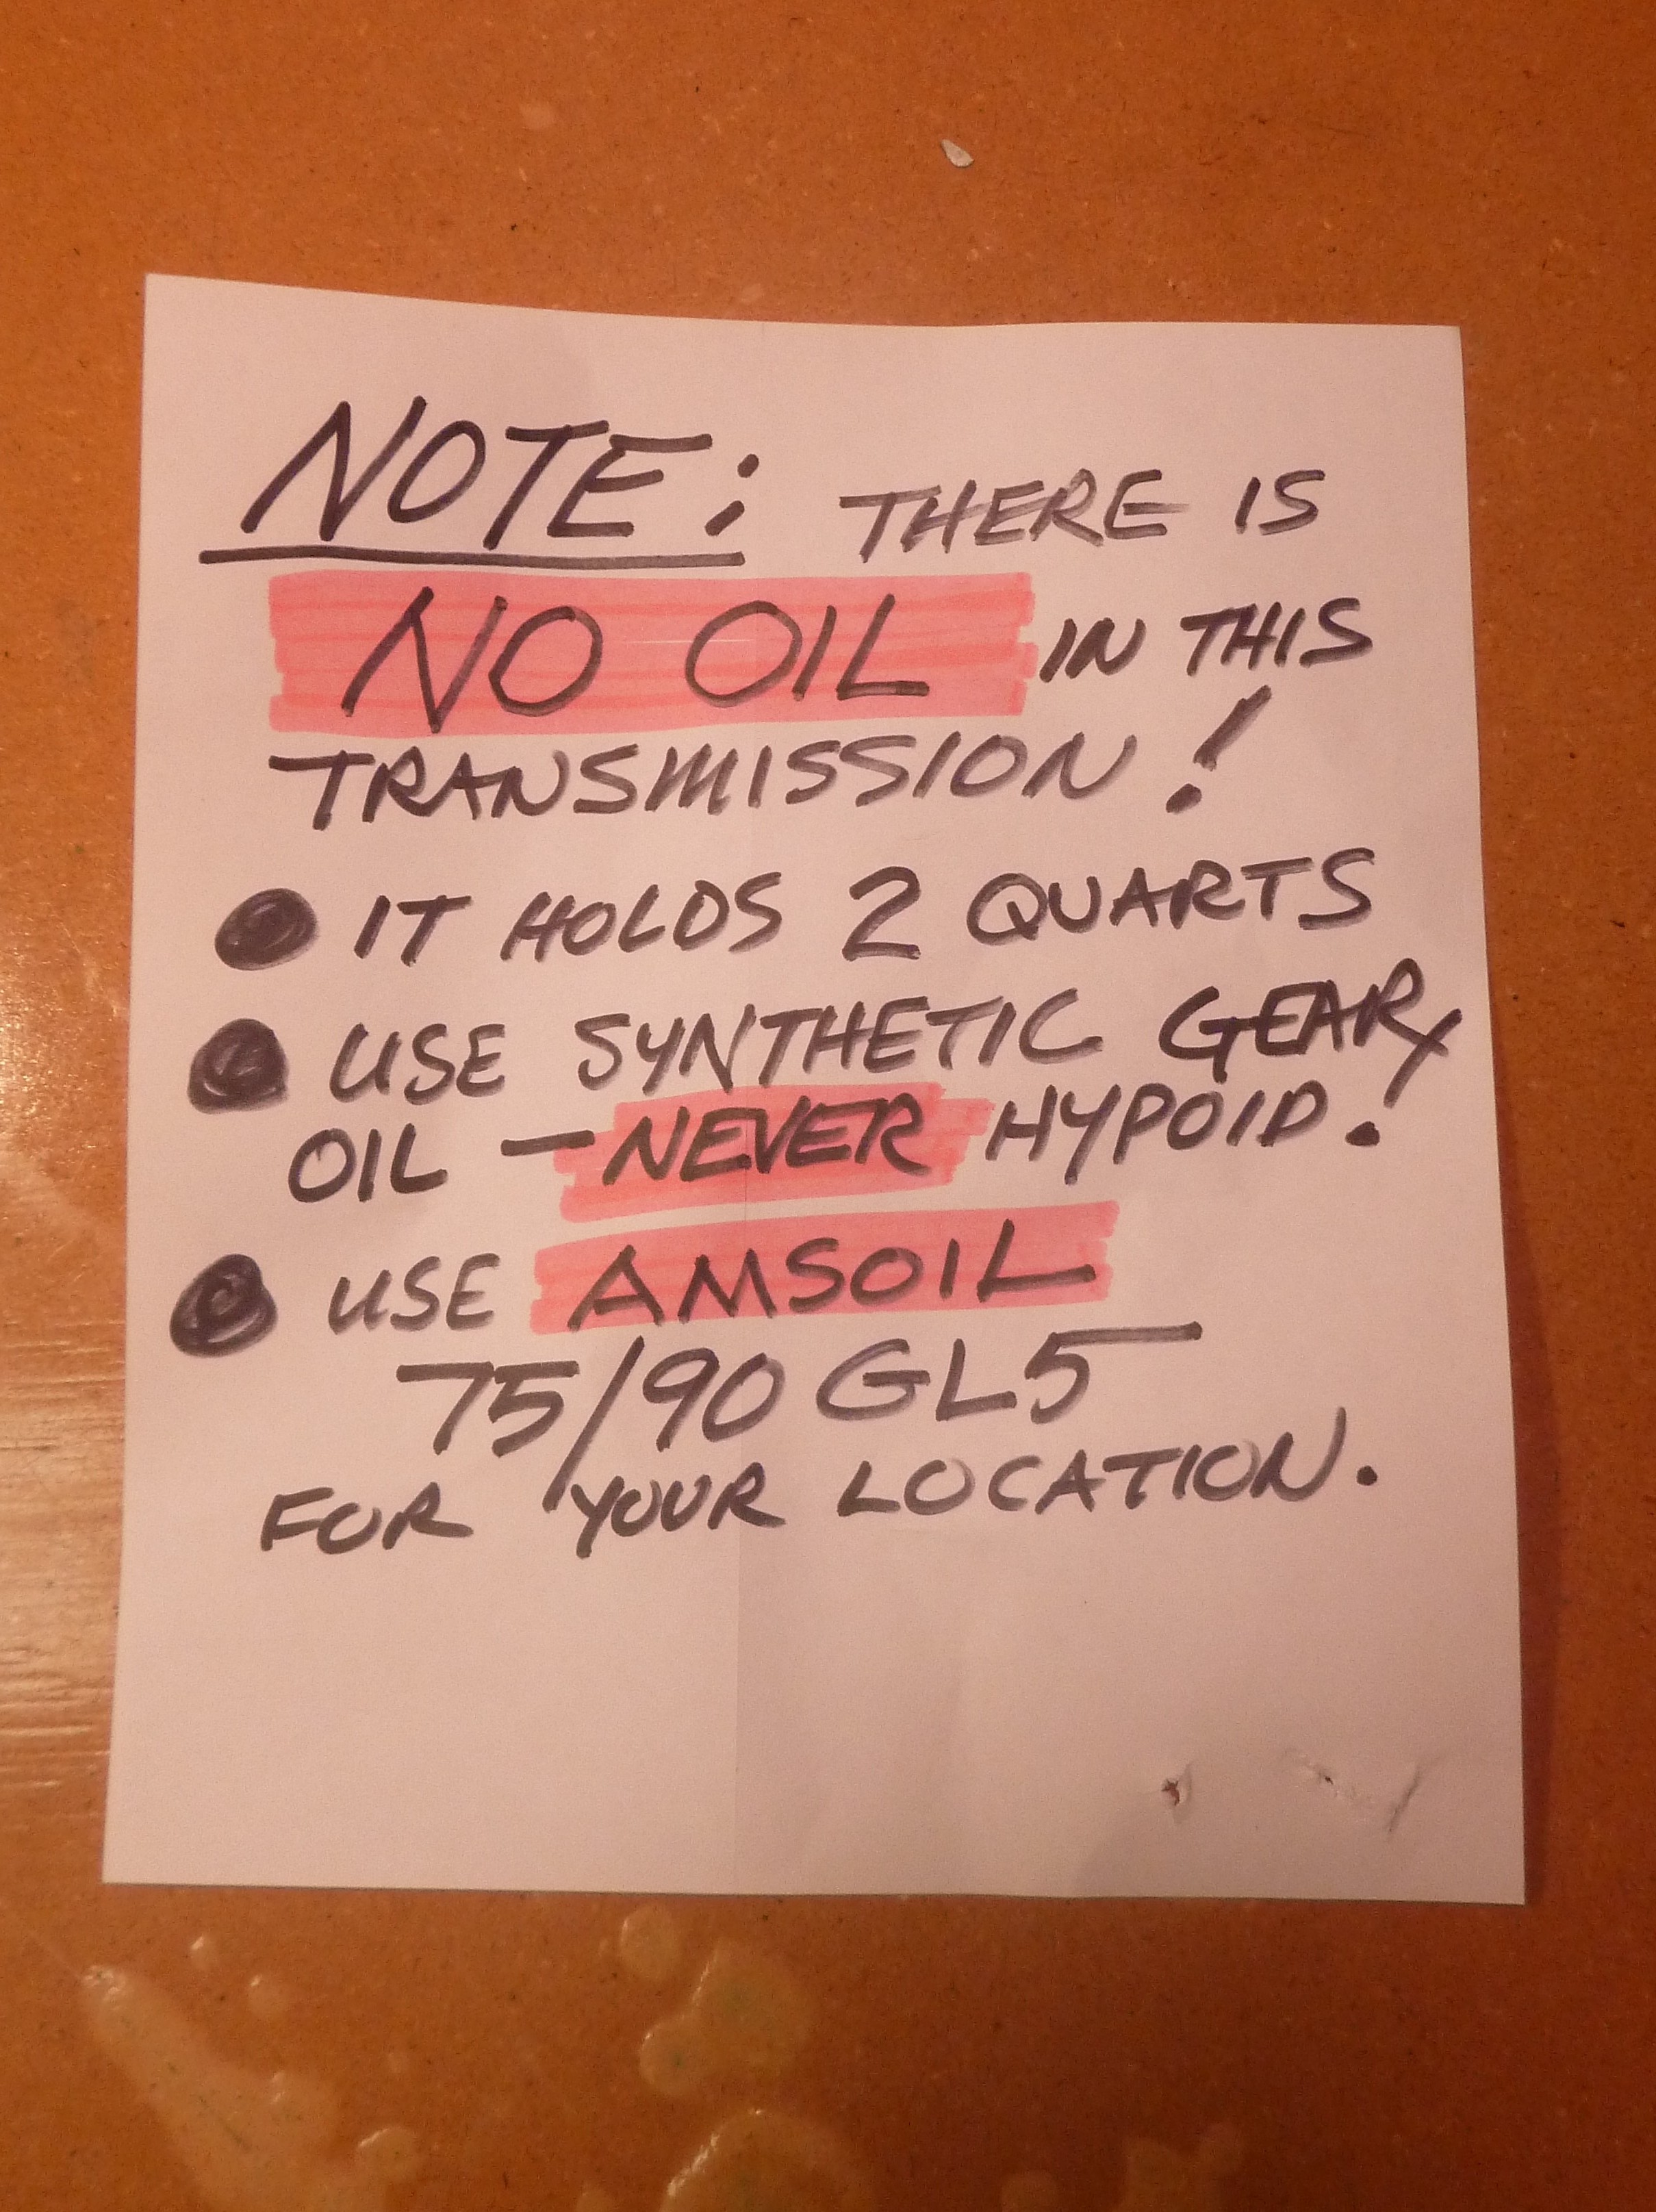 NOTE: THERE IS
NO OIL IN THIS
TRANSMISSION!
● IT HOLDS 2 QUARTS
● USE SYNTHETIC GEAR
OIL - NEVER HYPOID!
● USE AMSOIL
75/90 GL5
FOR YOUR LOCATION.